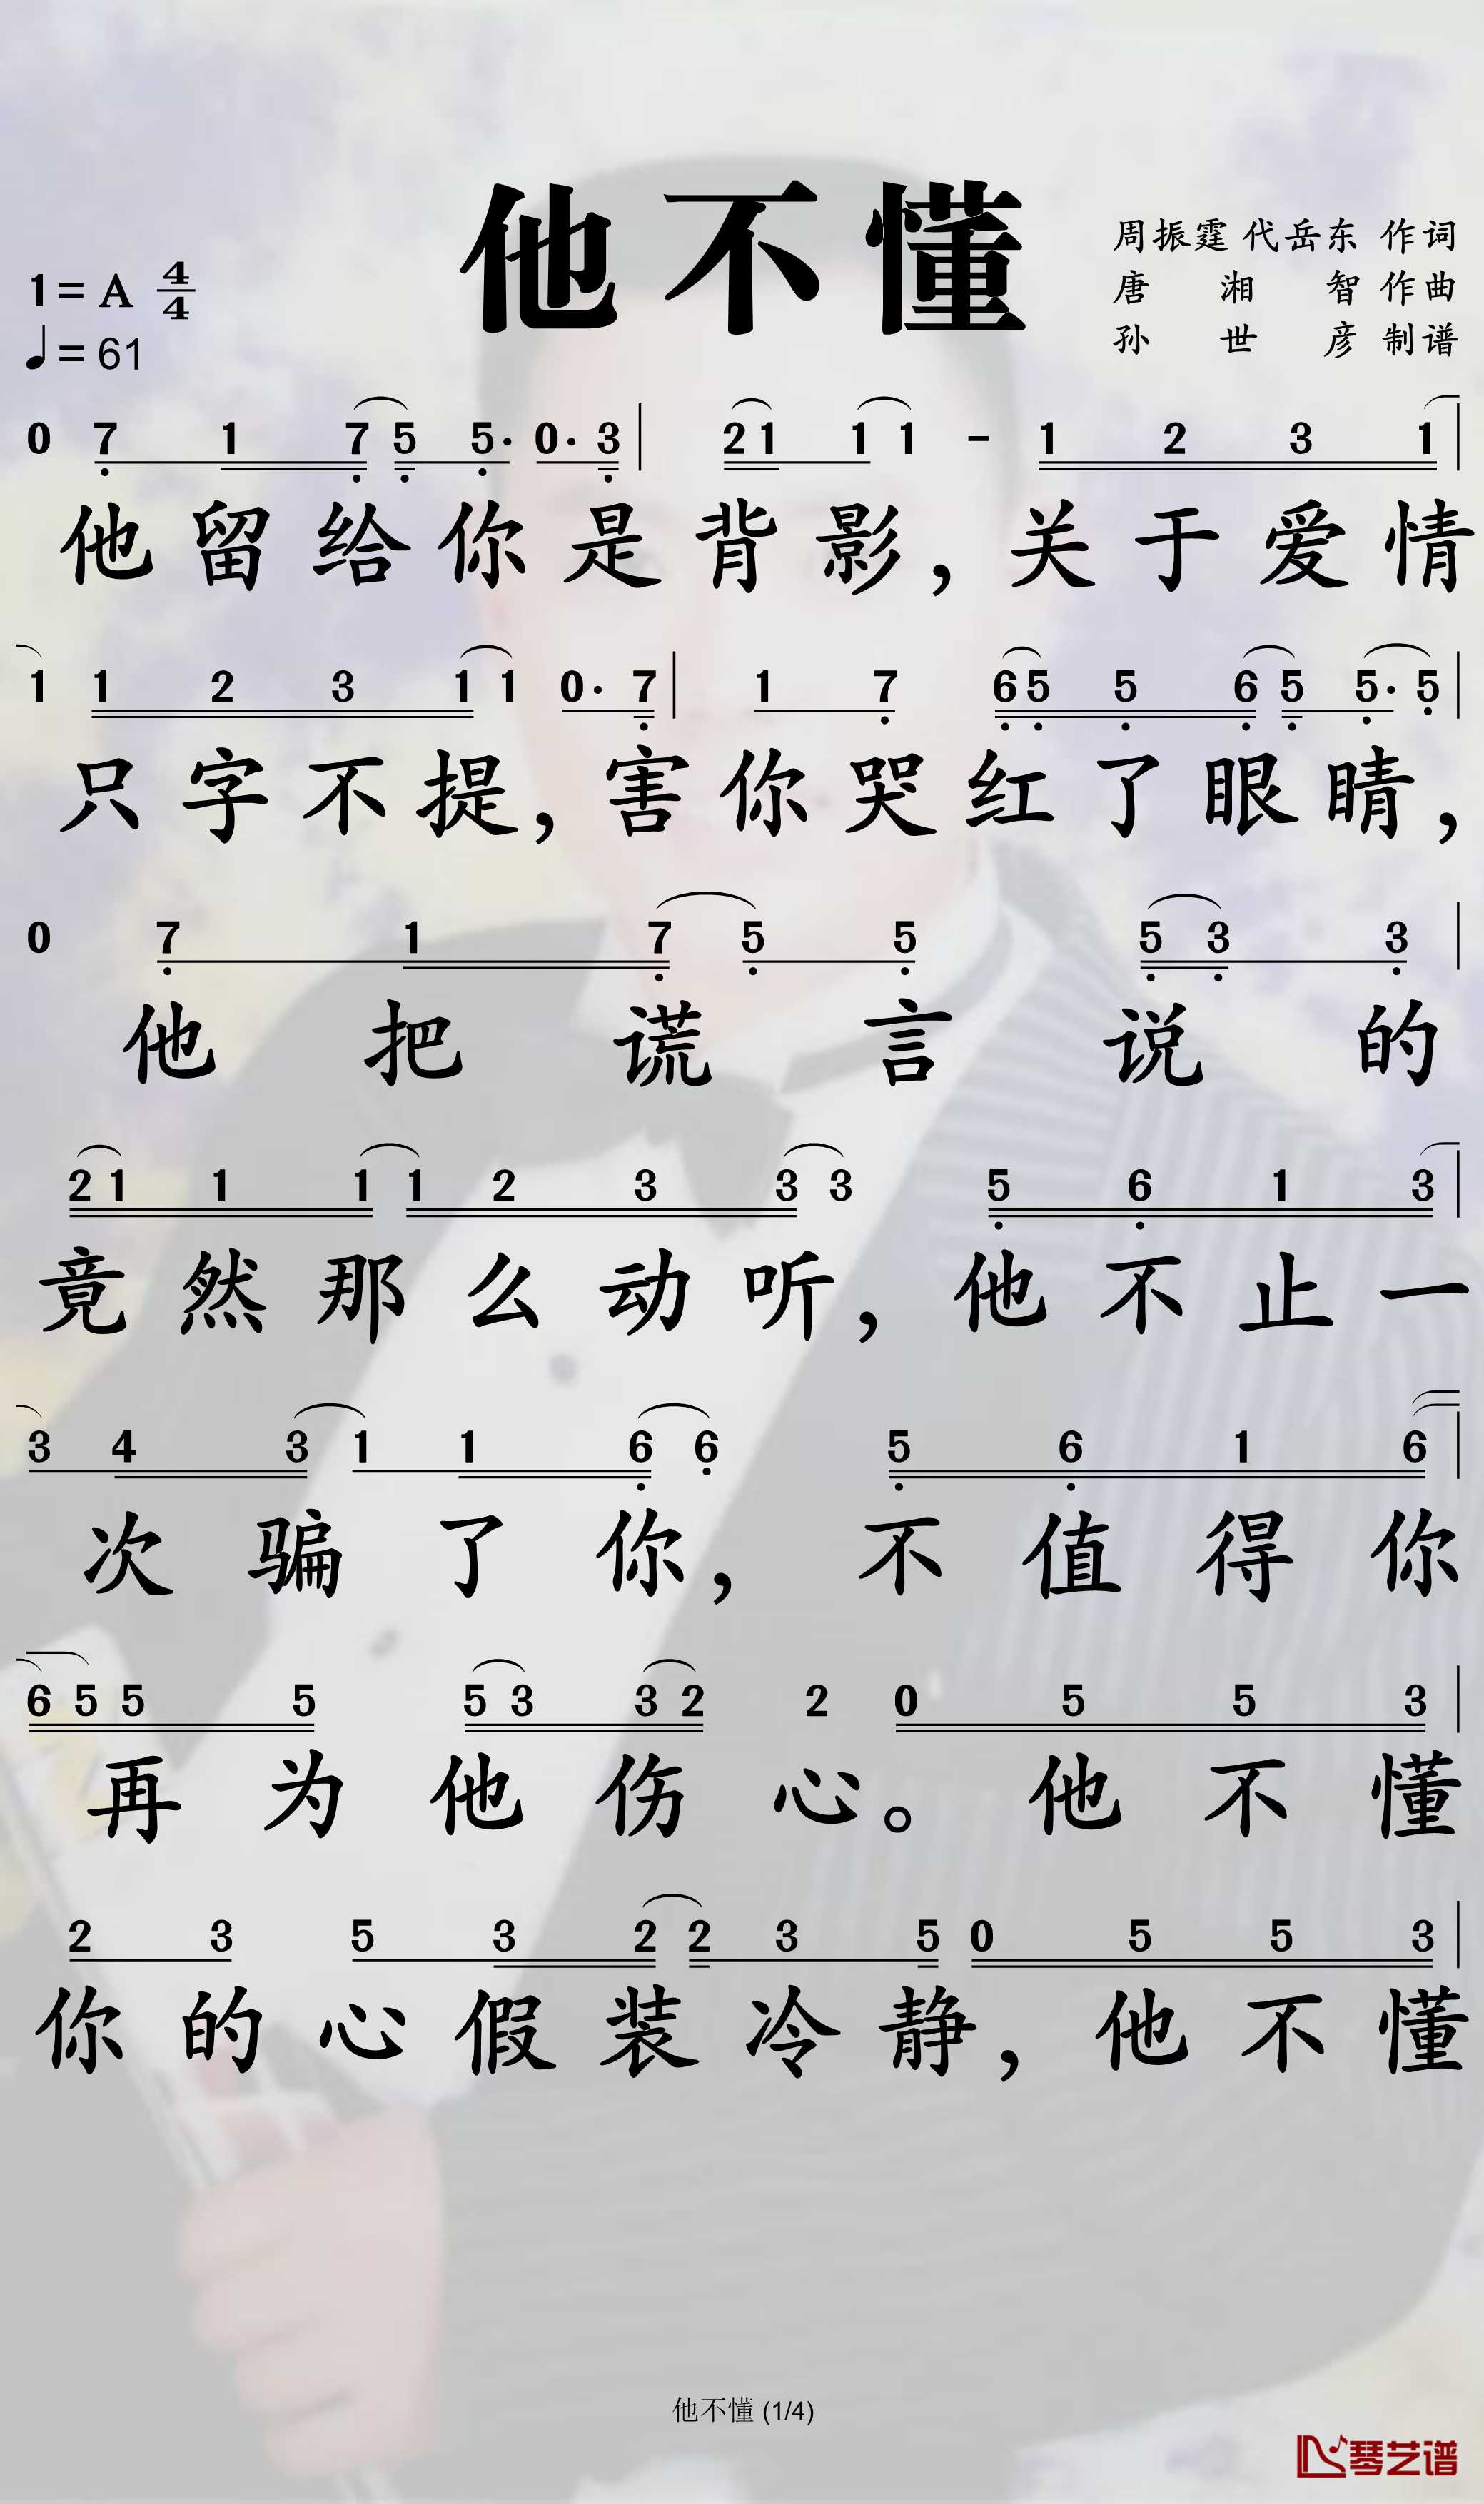 他不懂
周振霆 代岳东 作词
1= A 4/4
唐 湘 智 作曲
♩= 61
孙 世 彦 制谱
0 7 1 7 5 5· 0· 3 | 2 1 1 1 - 1 2 3 1 |
他留给你是背影，关于爱情
1 1 2 3 1 1 0· 7 | 1 7 6 5 5 6 5 5· 5 |
只字不提，害你哭红了眼睛，
0 7 1 7 5 5 5 3 3 |
他把谎言说的
2 1 1 1 1 2 3 3 3 5 6 1 3 |
竟然那么动听，他不止一
3 4 3 1 1 6 6 5 6 1 6 |
次骗了你，不值得你
6 5 5 5 5 3 3 2 2 0 5 5 3 |
再为他伤心。他不懂
2 3 5 3 2 2 3 5 0 5 5 3 |
你的心假装冷静，他不懂
他不懂 (1/4)
琴艺谱